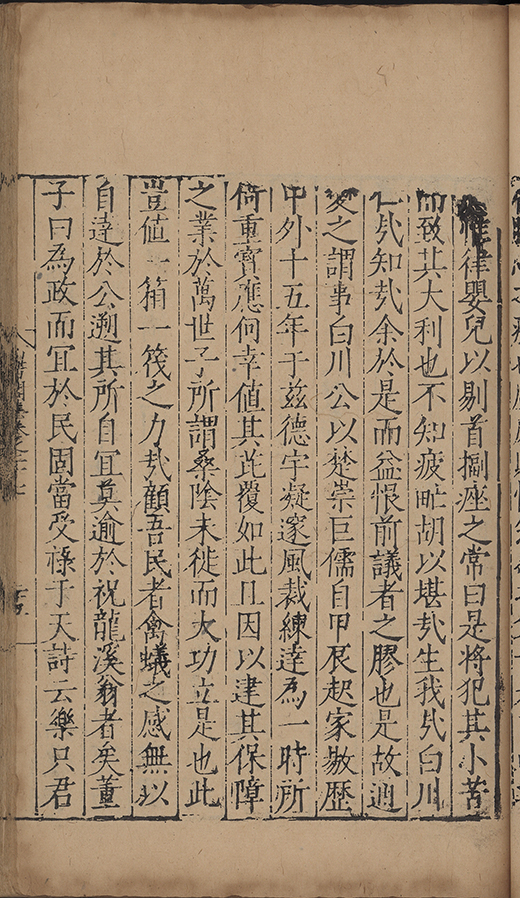 律嬰兒以剔首揊痤之常曰是將犯其小苦
而致其大利也不知疲甿胡以堪哉生我哉白川
仁哉知哉余於是而益恨前議者之膠也是故週
之謂事白川公以楚崇巨儒自甲辰起家敭歷
中外十五年于茲德宇凝邃風裁練達為一時所
倚重寶應何幸值其芘覆如此且因以建其保障
之業於萬世子所謂桑陰未徙而大功立是也此
豈值一箱一筏之力哉顧吾民者禽蟻之感無以
自達於公溯其所自宜莫逾於祝龍溪翁者矣董
子曰為政而宜於民固當受祿于天詩云樂只君